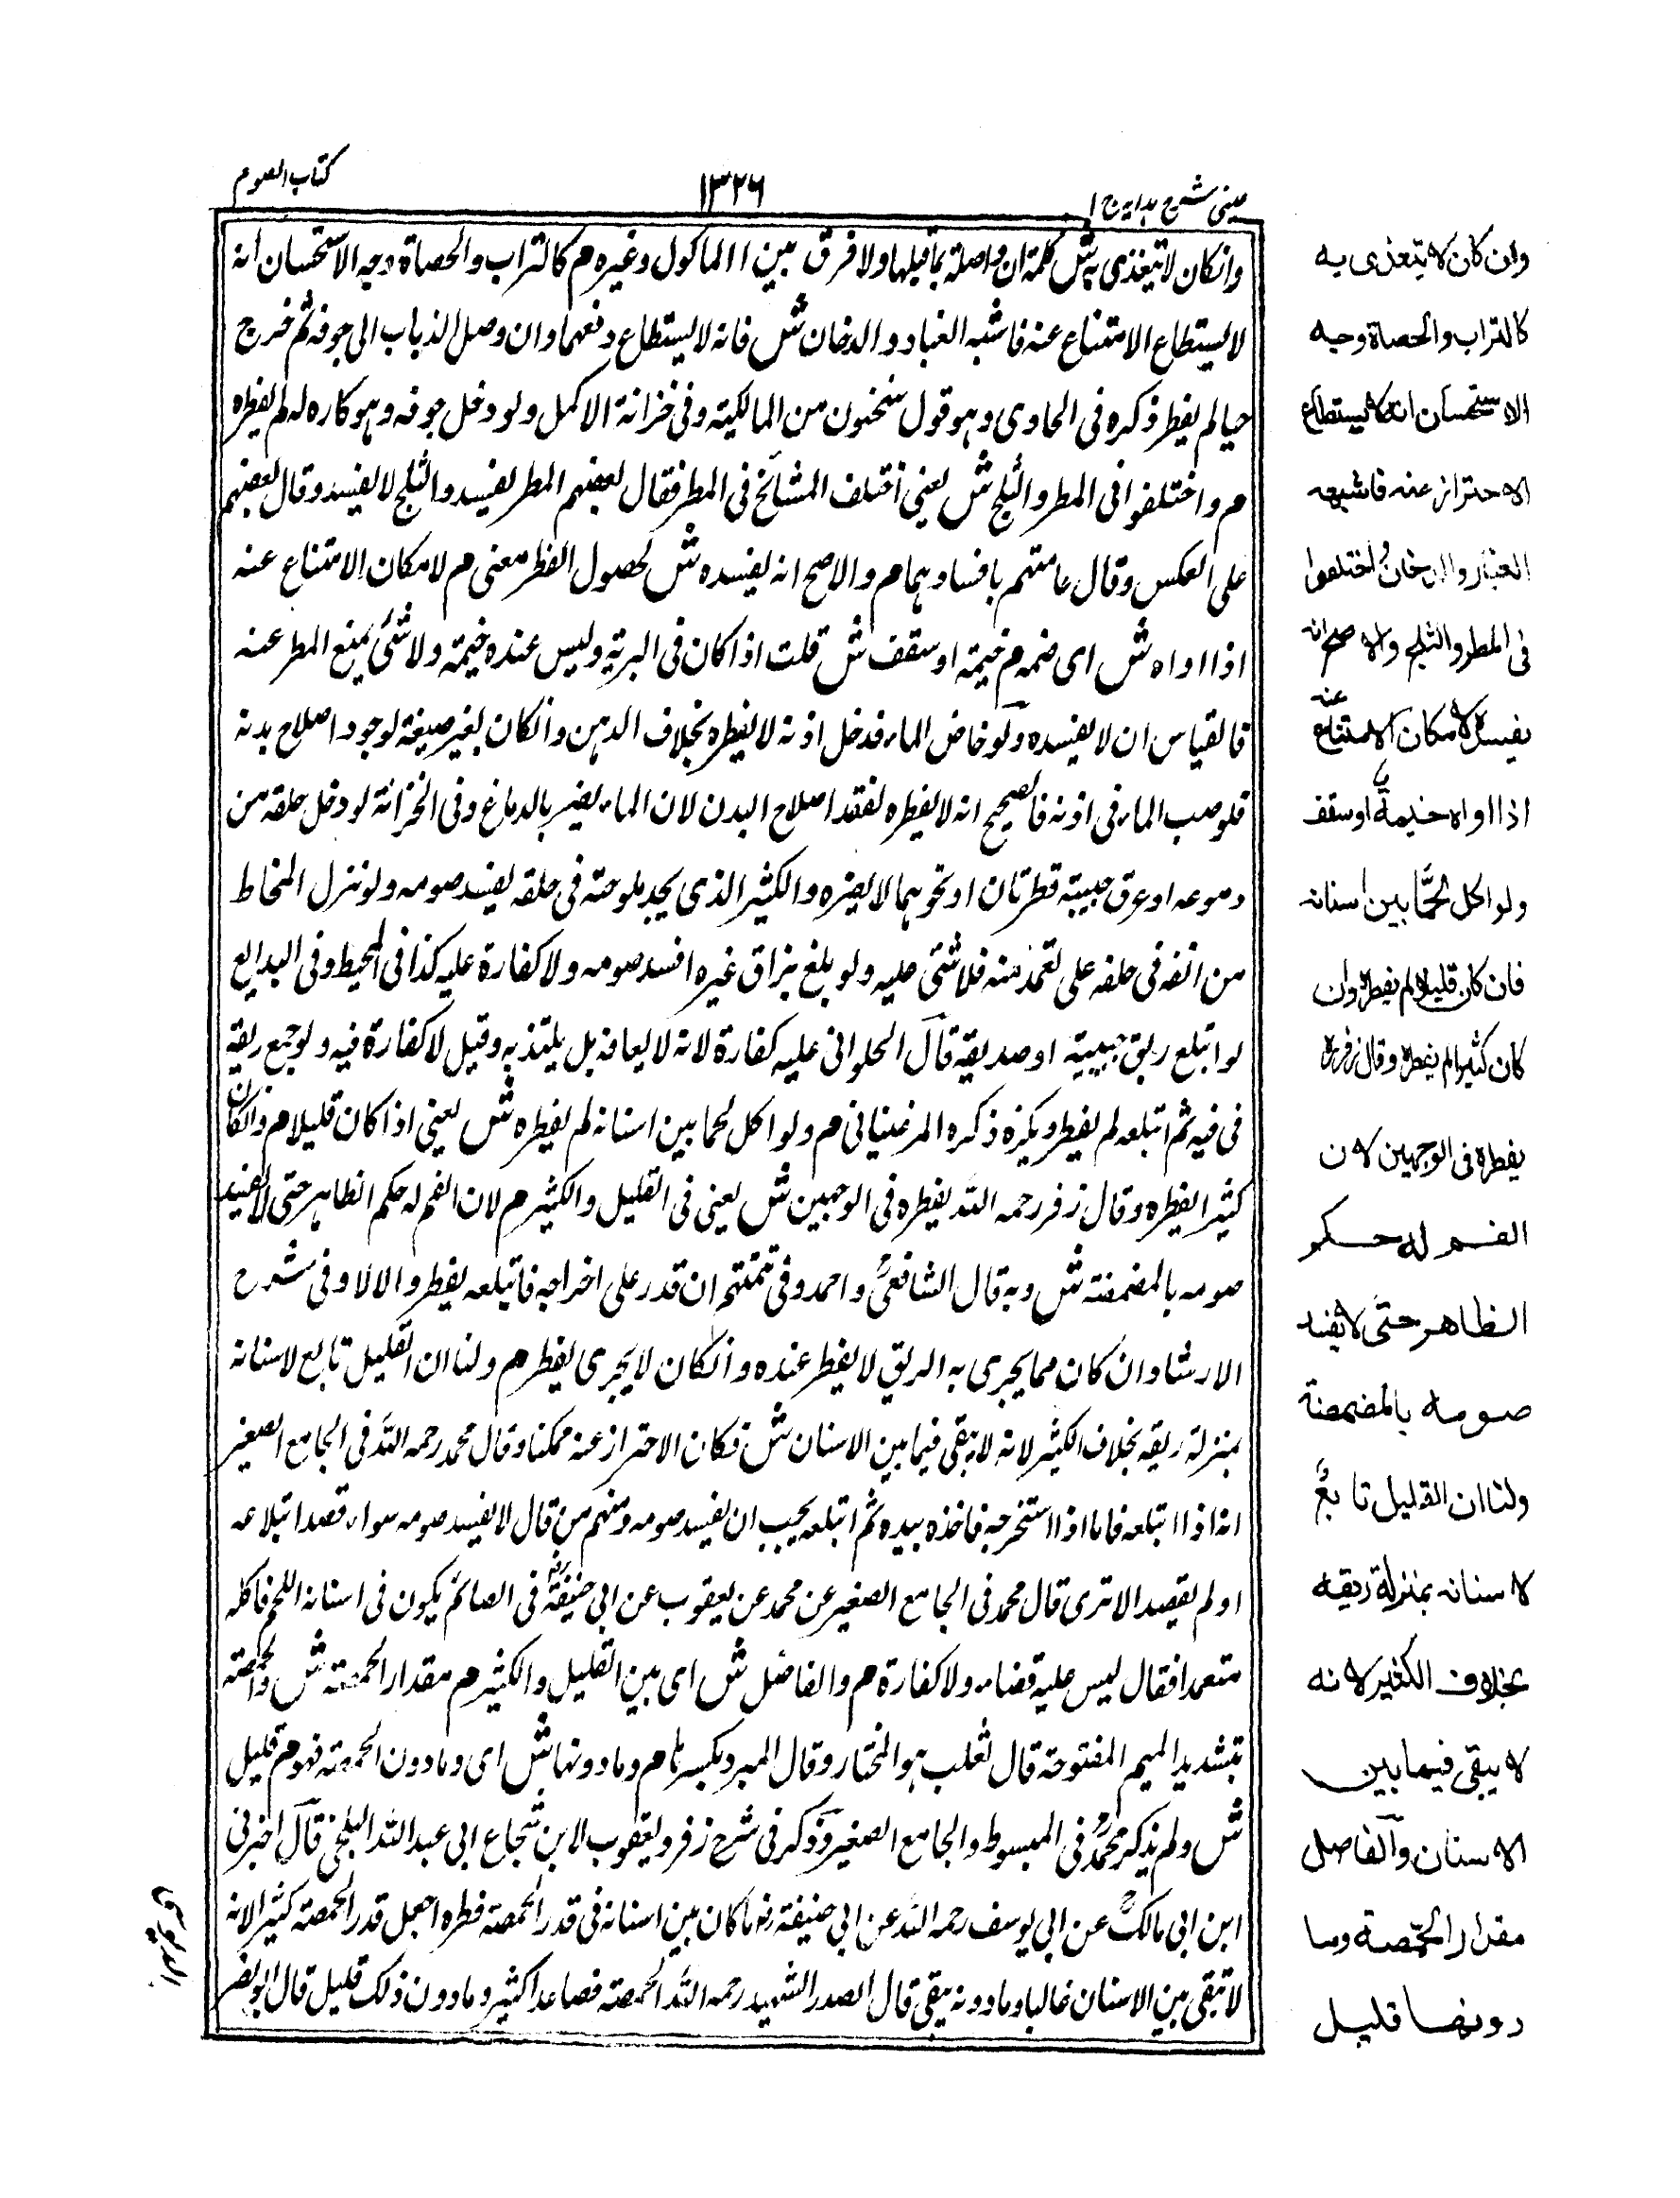 عینی شرح ہدایہ ج ۱
۱۳۲۶
کتاب الصوم
وانکان لا یتغذی بہ ش کلمۃ ان واصلۃ بما قبلہا ولا فرق بین االماکول وغیرہ م کالتراب والحصاۃ وجہ الاستحسان انہ
لا یستطاع الامتناع عنہ فاشبہ الغبار والدخان ش فانہ لا یستطاع دفعہما وان وصل الذباب الی جوفہ ثم خرج
حیا لم یفطر ذکرہ فی الحاوی وہو قول سحنون من المالکیۃ وفی خزانۃ الاکمل ولو دخل جوفہ وہو کارہ لہ لم یفطرہ
م واختلفوا فی المطر والثلج ش یعنی اختلف المشائخ فی المطر فقال بعضہم المطر یفسد والثلج لا یفسد وقال بعضہم
علی العکس وقال عامتہم بافسادہما م والاصح انہ یفسدہ ش لحصول الفطر معنی م لامکان الامتناع عنہ
اذا اواہ ش ای ضمہ م خیمۃ او سقف ش قلت اذا کان فی البریۃ ولیس عندہ خیمۃ ولا شئ یمنع المطر عنہ
فالقیاس ان لا یفسدہ ولو خاض الماء فدخل اذنہ لا یفطرہ بخلاف الدہن وانکان بغیر صیغۃ لوجود اصلاح بدنہ
فلو صب الماء فی اذنہ فالصحیح انہ لا یفطرہ لفقد اصلاح البدن لان الماء یضر بالدماغ وفی الخزانۃ لو دخل حلقہ من
دموعہ او عرق جبینہ قطرتان او نحوہما لا یضرہ والکثیر الذی یجد ملوحتہ فی حلقہ یفسد صومہ ولو نزل المخاط
من انفہ فی حلقہ علی تعمد منہ فلا شئ علیہ ولو بلغ بزاق غیرہ افسد صومہ ولا کفارۃ علیہ کذا فی المحیط وفی البدایع
لو ابتلع ریق حبیبہ او صدیقہ قال الحلوانی علیہ کفارۃ لانہ لا یعافہ بل یلتذ بہ وقیل لا کفارۃ فیہ ولو جمع ریقہ
فی فیہ ثم ابتلعہ لم یفطر ویکرہ ذکرہ المرغینانی م ولو اکل لحما بین اسنانہ لم یفطرہ ش یعنی اذا کان قلیلا م وانکان
کثیرا یفطرہ وقال زفر رحمہ اللہ یفطرہ فی الوجہین ش یعنی فی القلیل والکثیر م لان الفم لہ حکم الظاہر حتی لا یفسد
صومہ بالمضمضۃ ش وبہ قال الشافعیؒ واحمد وفی تتمتہم ان قدر علی اخراجہ فابتلعہ یفطر والا لا وفی شرح
الارشاد ان کان مما یجری بہ الریق لا یفطر عندہ وانکان لا یجری یفطر م ولنا ان القلیل تابع لاسنانہ
بمنزلۃ ریقہ بخلاف الکثیر لانہ لا یبقی فیما بین الاسنان ش فکان الاحتراز عنہ ممکنا وقال محمد رحمہ اللہ فی الجامع الصغیر
انہ اذا ابتلعہ فاما اذا استخرجہ فاخذہ بیدہ ثم ابتلعہ یجب ان یفسد صومہ ومنہم من قال لا یفسد صومہ سواء قصد ابتلاعہ
اولم یقصد الا تری قال محمد فی الجامع الصغیر عن محمد عن یعقوب عن ابی حنیفۃ رضہ فی الصائم یکون فی اسنانہ اللحم فاکلہ
متعمدا فقال لیس علیہ قضاء ولا کفارۃ م والفاصل ش ای بین القلیل والکثیر م مقدار الحمصۃ ش والحمصۃ
بتشدید المیم المفتوحۃ قال ثعلب ہو المختار وقال المبرد بکسرہا م وما دونہا ش ای وما دون الحمصۃ فہو م قلیل
ش ولم یذکر محمدؒ فی المبسوط والجامع الصغیر وذکر فی شرح زفر ویعقوب لابن شجاع ابی عبد اللہ البلخی قال اخبرنی
ابن ابی مالکؒ عن ابی یوسف رحمہ اللہ عن ابی حنیفۃ رضہ ما کان بین اسنانہ فی قدر الحمصۃ فطرہ اجعل قدر الحمصۃ کثیرا لانہ
لا تبقی بین الاسنان غالبا وما دونہ یبقی قال الصدر الشہید رحمہ اللہ الحمصۃ فصاعدا کثیر وما دون ذلک قلیل قال ابو نصر
وان كان لا يتغذى به
كالتراب والحصاة وجه
الاستحسان انه لا يستطاع
الاحتراز عنه فاشبه
الغبار والدخان واختلفوا
فى المطر والثلج والاصح انه
يفسد لامكان الامتناع عنه
اذا اواه خيمة او سقف
ولو اكل لحما بين اسنانه
فان كان قليلا لم يفطره وان
كان كثيرا لم يفطره وقال زفر
يفطره فى الوجهين لان
الفم له حكم
الظاهر حتى لا يفسد
صومه بالمضمضة
ولنا ان القليل تابع
لاسنانه بمنزلة ريقه
بخلاف الكثير لانه
لا يبقى فيما بين
الاسنان والفاصل
مقدار الحمصة وما
دونها قليل